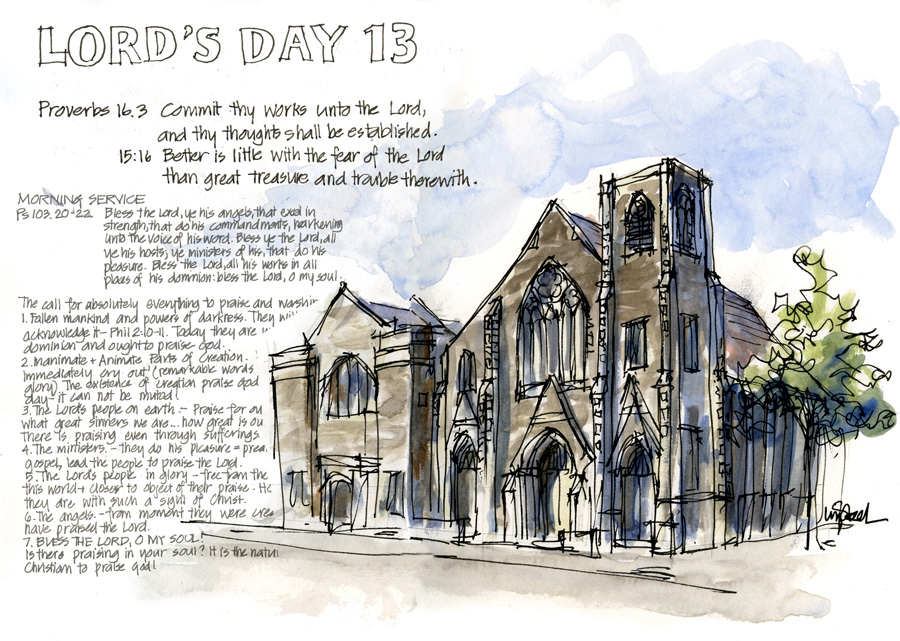 LORD'S DAY 13
Proverbs 16.3 Commit thy works unto the Lord,
and thy thoughts shall be established.
15:16 Better is little with the fear of the Lord
than great treasure and trouble therewith.
MORNING SERVICE
Ps 103.20-22 Bless the Lord, ye his angels, that excel in
strength, that do his commandments, hearkening
unto the voice of his word. Bless ye the Lord, all
ye his hosts; ye ministers of his, that do his
pleasure. Bless the Lord, all his works in all
places of his dominion: bless the Lord, O my soul.
The call for absolutely everything to praise and worship
1. Fallen mankind and powers of darkness. They
acknowledge it - Phil 2:10-11. Today they are
dominion and ought to praise God.
2. Inanimate + Animate Parts of Creation.
immediately cry out' (remarkable words
glory) The existence of creation praise God
day - it can not be muted!
3. The Lord's people on earth - Praise for
what great sinners we are... how great is
there is praising even through sufferings
4. The ministers. - they do his pleasure =
gospel, lead the people to praise the Lord.
5. The Lord's people in glory - free from the
this world + closer to object of their praise.
they are with such a sight of Christ.
6. The angels. - from moment they were
have praised the Lord.
7. BLESS THE LORD, O MY SOUL!
Is there praising in your soul? It is the
Christian to praise God!